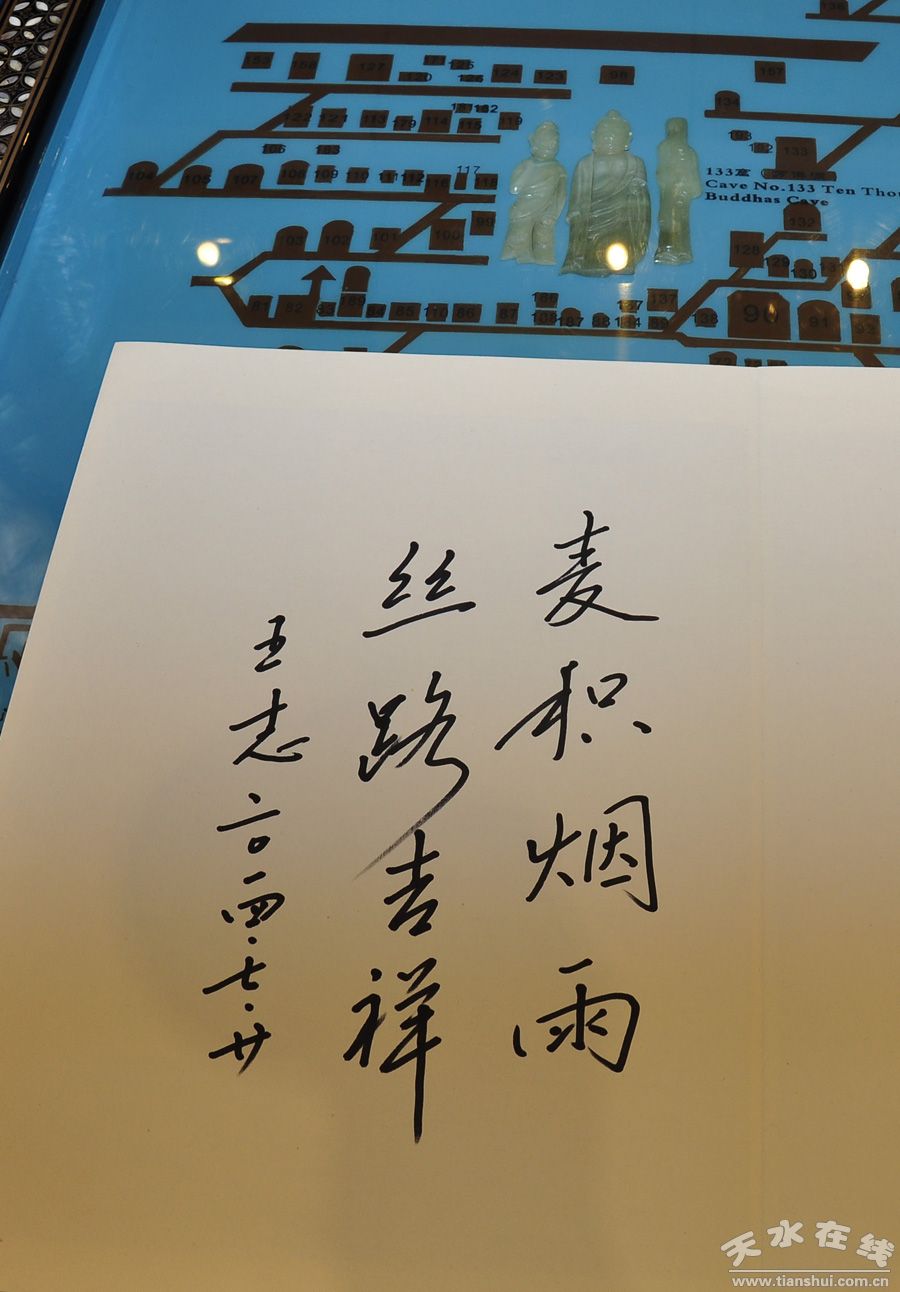 麦积烟雨
丝路吉祥
王志 二〇一四·七·廿
133窟
Cave No.133 Ten Thou
Buddhas Cave
153 158 127 171 125 120 126 124 123 98 157
122 121 113 179 114 115 119 134
106 133
104 105 107 108 109 110 111 112 116 117 118
103 102 101 100 99 128 132
81 82 83 169 84 85 110 86 87 168 187 137 138 90 91 92
天水在线
www.tianshui.com.cn